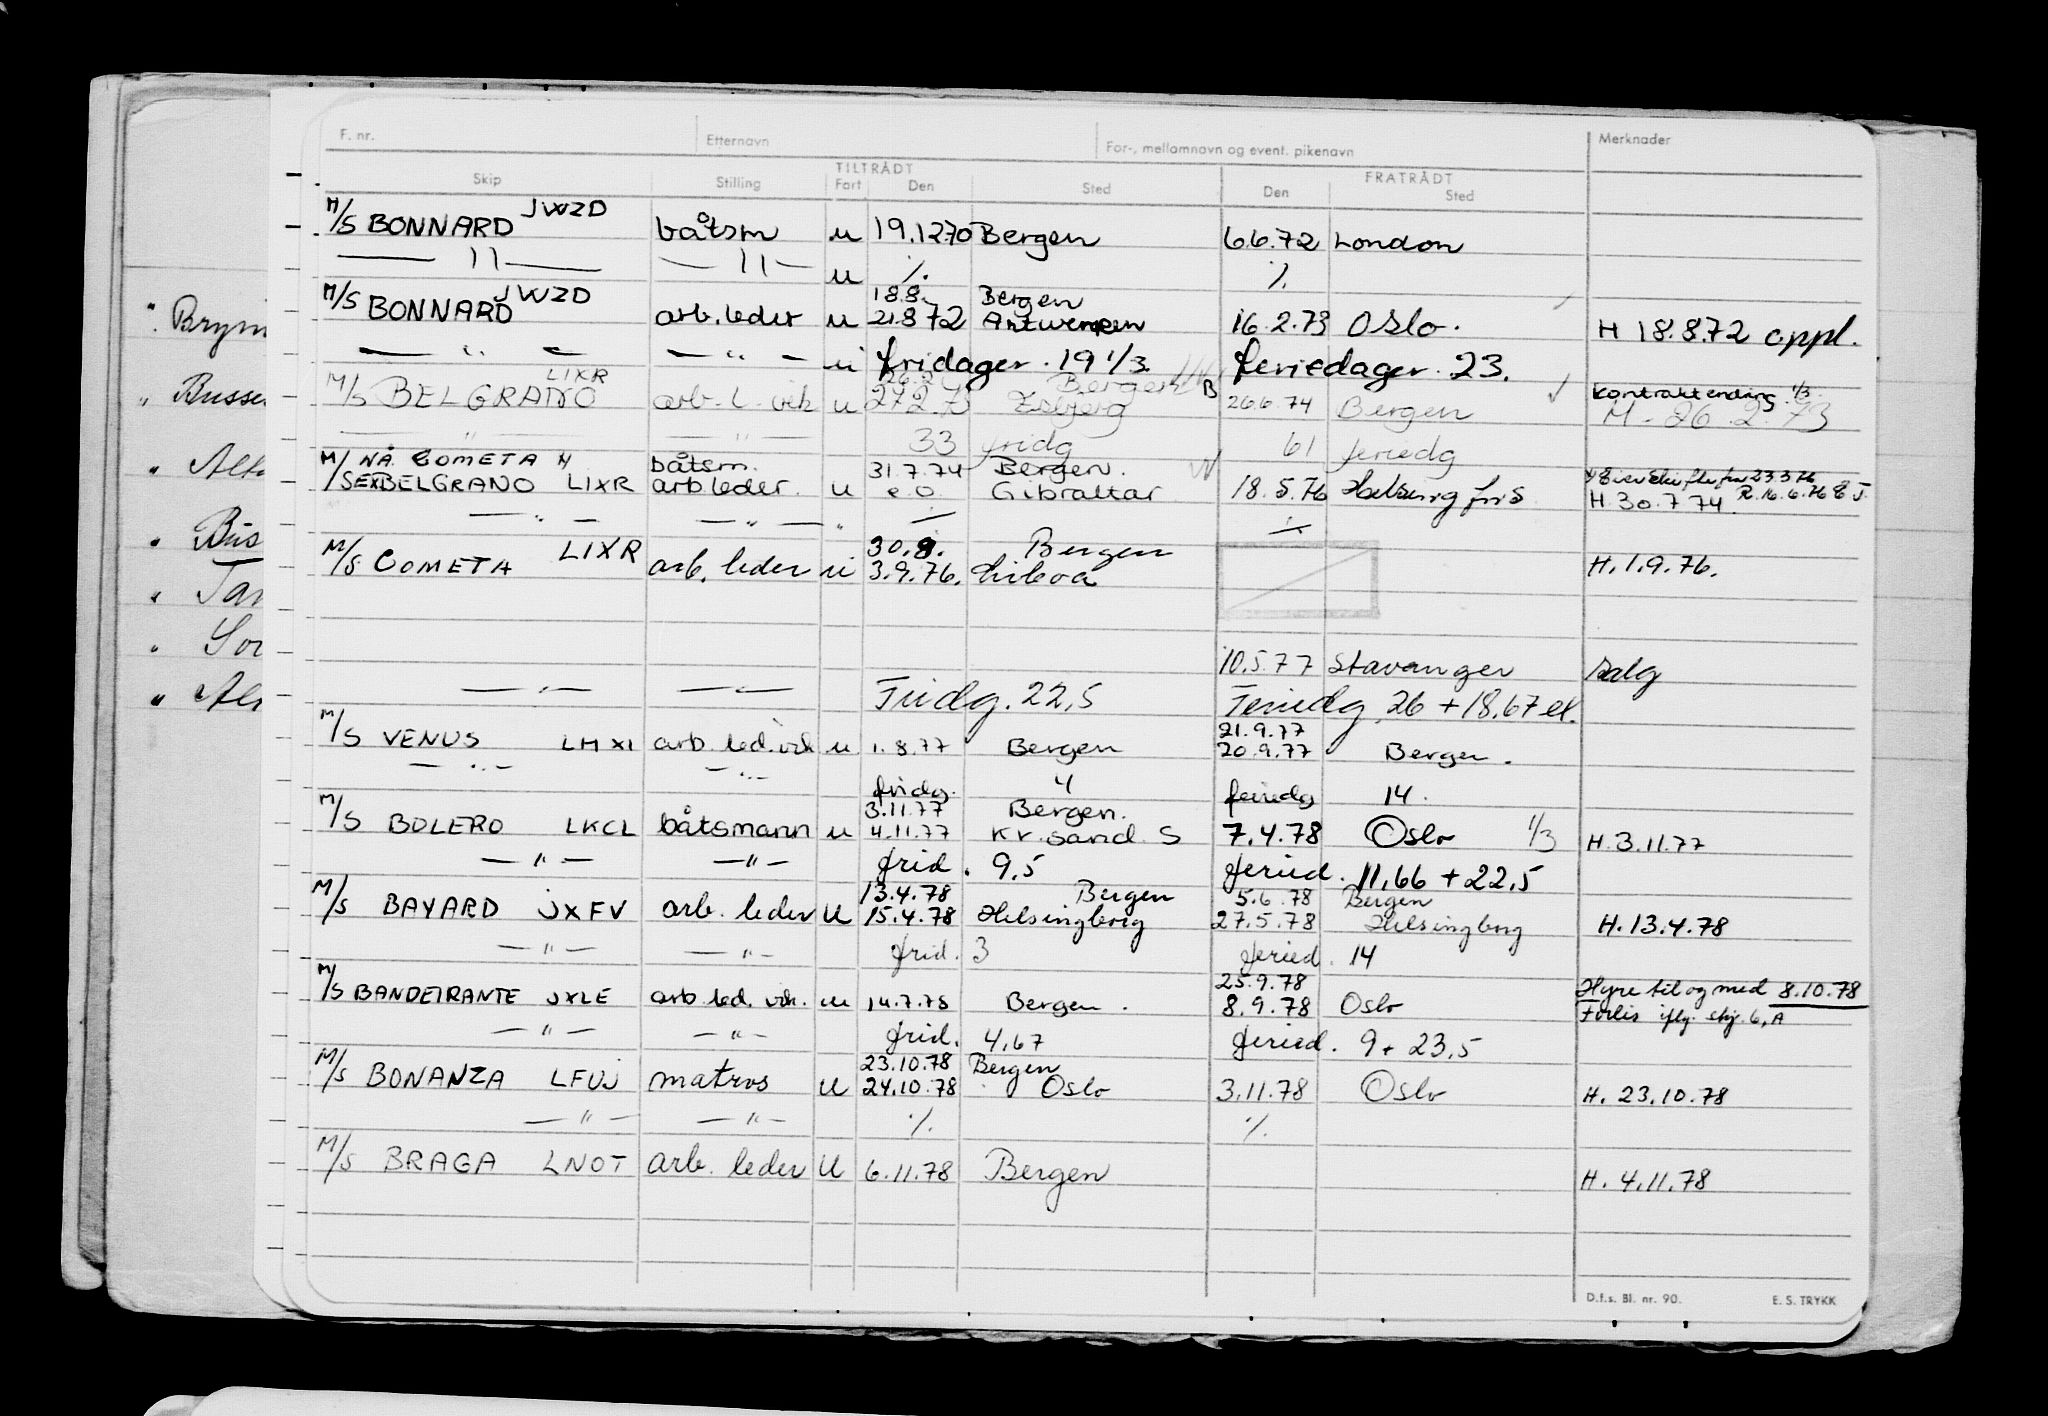 F. nr. Etternavn For-, mellomnavn og event. pikenavn Merknader
TILTRÅDT FRATRÅDT
Skip Stilling Fart Den Sted Den Sted
M/S BONNARD JWZD båtsm u 19.1270 Bergen 6.6.72 London
— " — — " — u % %
18.8. Bergen
M/S BONNARD JWZD arb.leder u 21.8 72 Antwerpen 16.2.73 Oslo. H 18.8.72 oppl.
— " — — " — u fridager. 19 1/3. feriedager. 23.
26.2 Bergen B Kontraktendring 1/3.
M/S BELGRANO LIXR arb. l. vik u 27.2.73 Esbjerg 26.6.74 Bergen M - 26.2.73
— " — — " — 33 fridg 61 feriedg
M/ NÅ COMETA båtsm. 31.7.74 Bergen.
/S EX BELGRANO LIXR arbleder. u e.o. Gibraltar 18.5.76 H.30.7.74. R.16.6.76
— " — — " — "
30.8. Bergen
M/S COMETA LIXR arb. leder u 3.9.76. H.1.9.76.
10.5.77 Stavanger salg
— " — — " — Fridg. 22,5 Feriedg. 26 + 18,67 el.
21.9.77
M/S VENUS LMXI arb. led. vik u 1.8.77 Bergen 20.9.77 Bergen.
— " — — " — fridg. 4 feriedg 14.
3.11.77 Bergen.
M/S BOLERO LKCL båtsmann u 4.11.77 Kr. sand. S 7.4.78 Oslo 1/3 H.3.11.77
— " — — " — frid. 9,5 feried. 11,66 + 22,5
13.4.78 Bergen 5.6.78 Bergen
M/S BAYARD JXFV arb. leder U 15.4.78 Helsingborg 27.5.78 Helsingborg H.13.4.78
— " — — " — frid. 3 feried. 14
25.9.78 Hyre til og med 8.10.78
M/S BANDEIRANTE JXLE arb. led. vik. u 14.7.78 Bergen. 8.9.78 Oslo Forlis iflg. skj. 6,A
— " — — " — frid. 4,67 feried. 9 + 23,5
23.10.78 Bergen
M/S BONANZA LFUJ matros U 24.10.78 Oslo 3.11.78 Oslo H. 23.10.78
— " — — " — % %
M/S BRAGA LNOT arb. leder U 6.11.78 Bergen H. 4.11.78
D.f.s. Bl. nr. 90. E. S. TRYKK